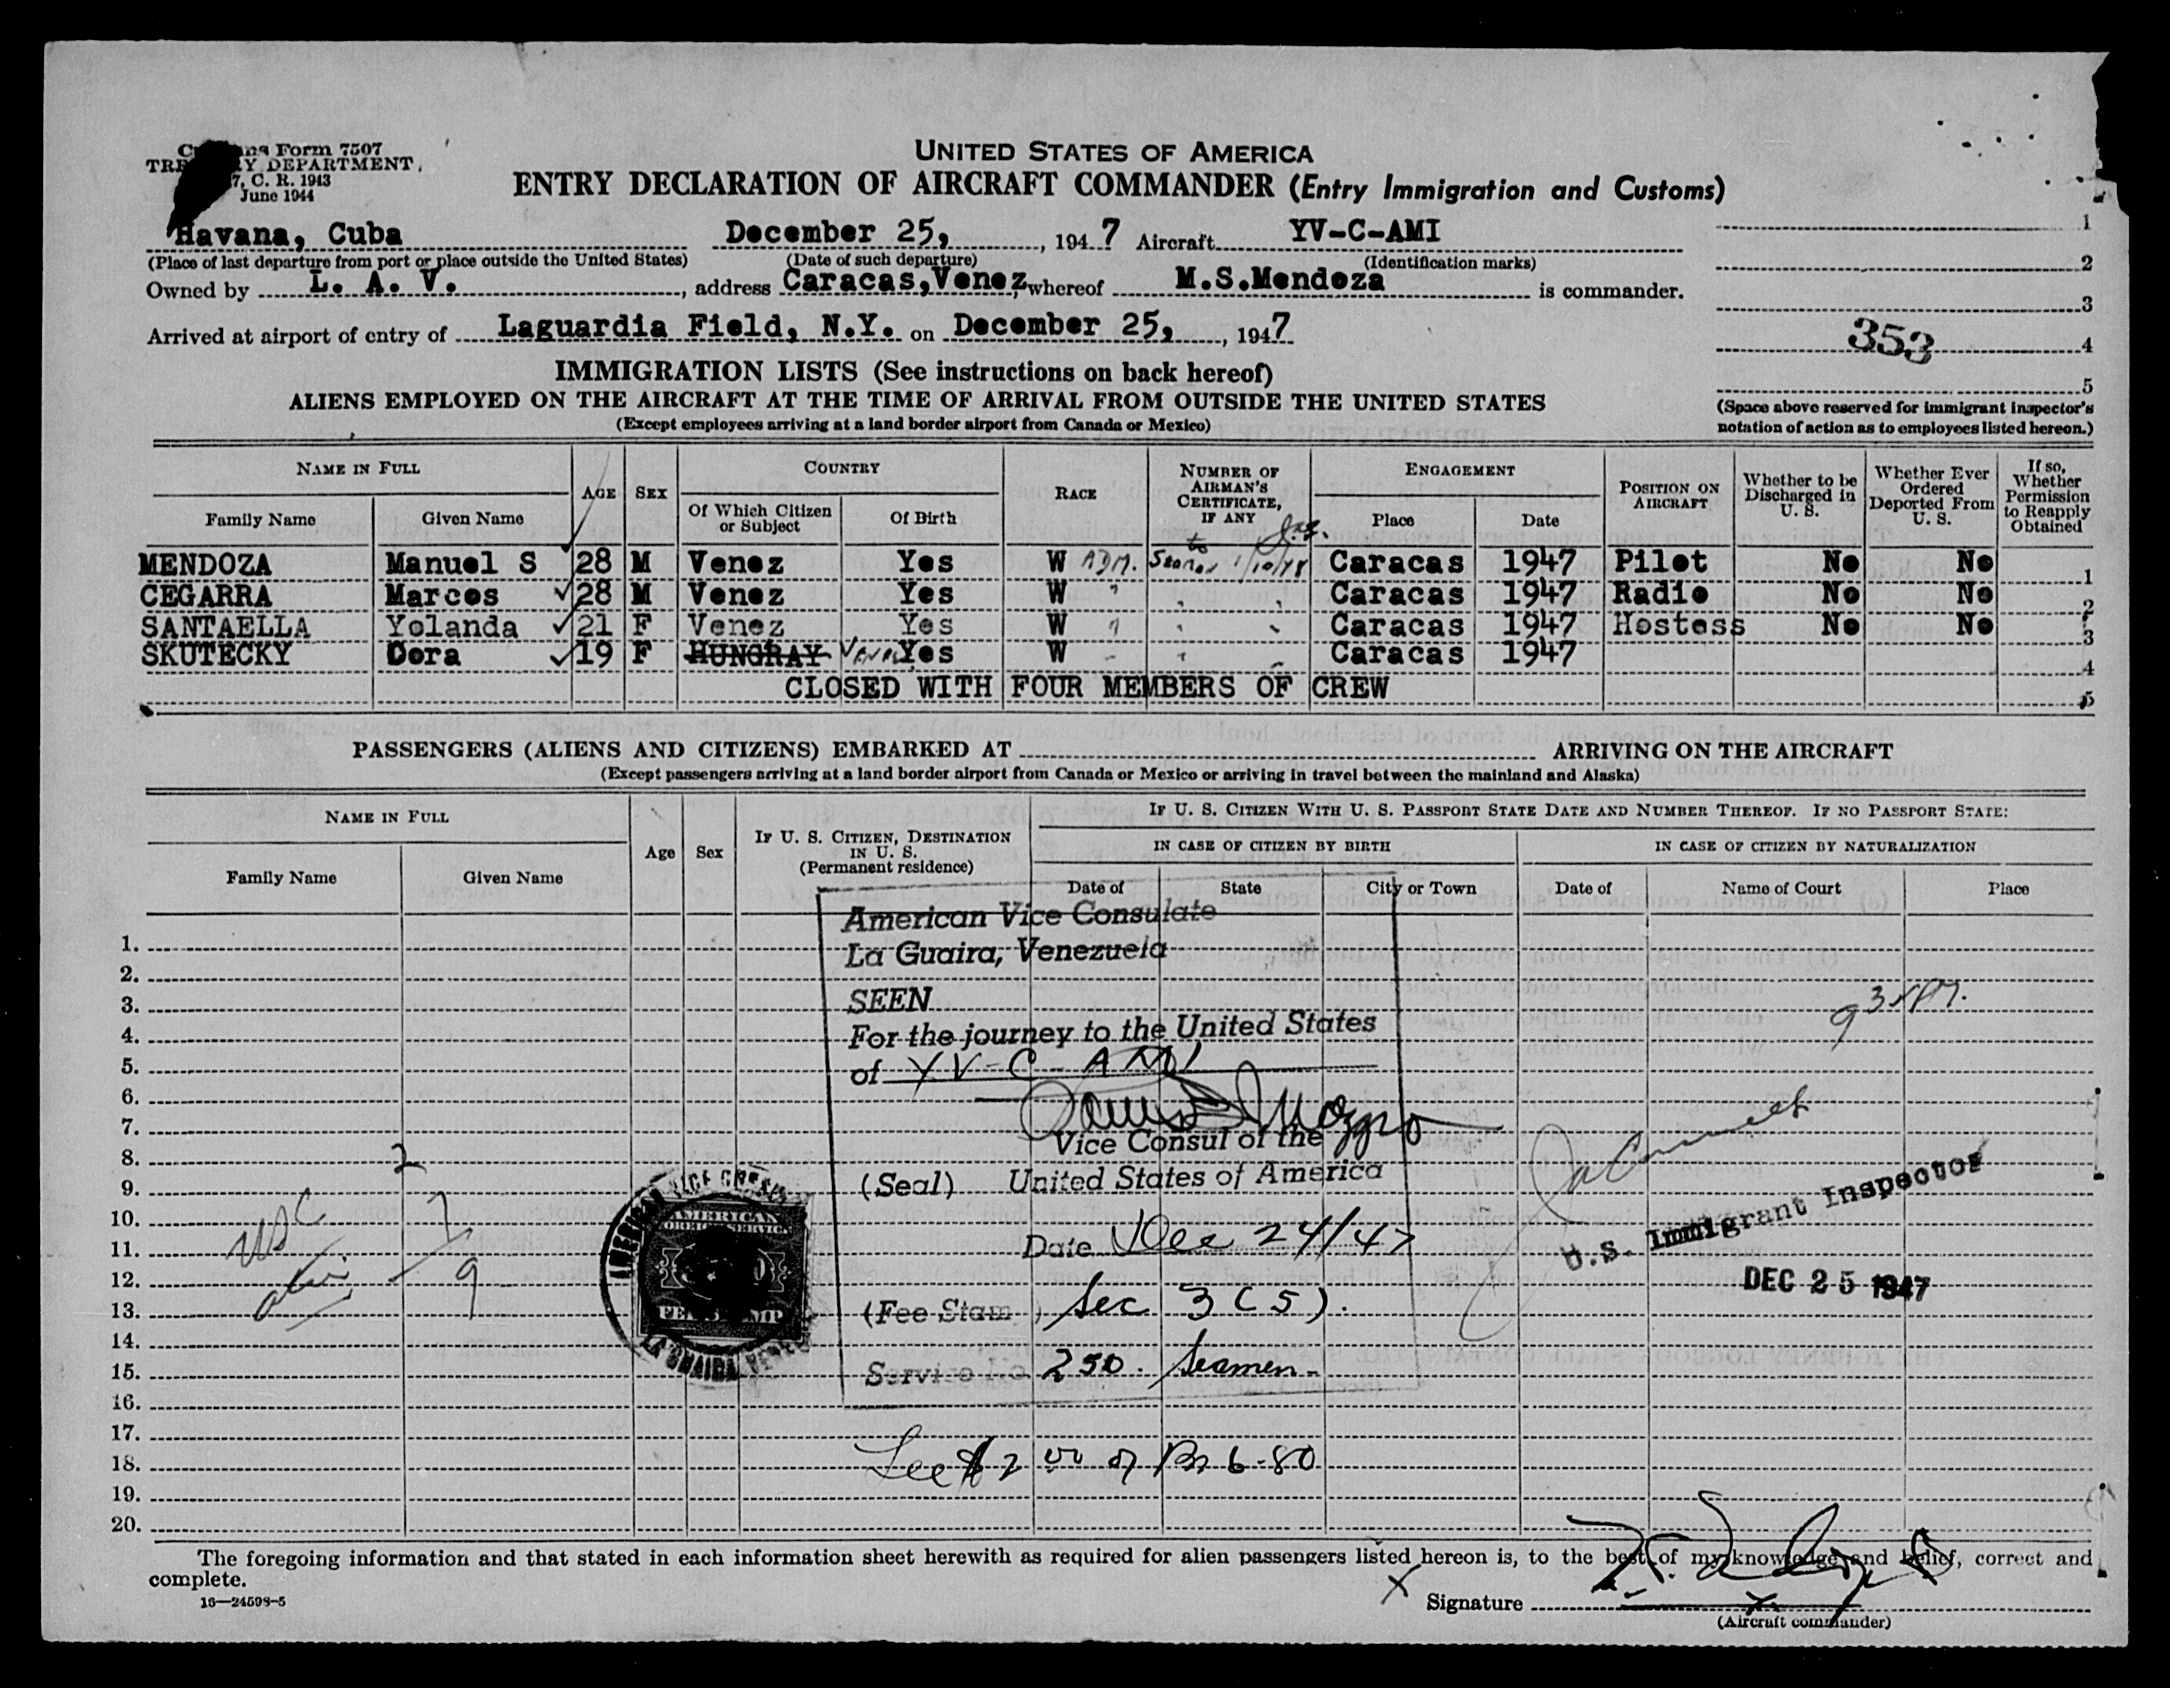 Form 7507
DEPARTMENT
C. R. 1943
June 1944
UNITED STATES OF AMERICA
ENTRY DECLARATION OF AIRCRAFT COMMANDER (Entry Immigration and Customs)
Havana, Cuba December 25, 1947 Aircraft YV-C-AMI
(Place of last departure from port or place outside the United States) (Date of such departure) (Identification marks)
Owned by L. A. V., address Caracas,Venez, whereof M.S.Mendoza is commander.
Arrived at airport of entry of Laguardia Field, N.Y. on December 25, 1947
1
2
3
353 4
5
(Space above reserved for immigrant inspector's notation of action as to employees listed hereon.)
IMMIGRATION LISTS (See instructions on back hereof)
ALIENS EMPLOYED ON THE AIRCRAFT AT THE TIME OF ARRIVAL FROM OUTSIDE THE UNITED STATES
(Except employees arriving at a land border airport from Canada or Mexico)
NAME IN FULL AGE SEX COUNTRY RACE NUMBER OF AIRMAN'S CERTIFICATE, IF ANY ENGAGEMENT POSITION ON AIRCRAFT Whether to be Discharged in U. S. Whether Ever Ordered Deported From U. S. If so, Whether Permission to Reapply Obtained
Family Name Given Name Of Which Citizen or Subject Of Birth Place Date
MENDOZA Manuel S 28 M Venez Yes W ADM. to 1/10/48 Caracas 1947 Pilot No No 1
CEGARRA Marcos 28 M Venez Yes W " Caracas 1947 Radio No No 2
SANTAELLA Yolanda 21 F Venez Yes W " Caracas 1947 Hostess No No 3
SKUTECKY Dora 19 F HUNGRAY Yes W Caracas 1947 4
CLOSED WITH FOUR MEMBERS OF CREW 5
PASSENGERS (ALIENS AND CITIZENS) EMBARKED AT ARRIVING ON THE AIRCRAFT
(Except passengers arriving at a land border airport from Canada or Mexico or arriving in travel between the mainland and Alaska)
NAME IN FULL Age Sex IF U. S. CITIZEN, DESTINATION IN U. S. (Permanent residence) IF U. S. CITIZEN WITH U. S. PASSPORT STATE DATE AND NUMBER THEREOF. IF NO PASSPORT STATE:
IN CASE OF CITIZEN BY BIRTH IN CASE OF CITIZEN BY NATURALIZATION
Family Name Given Name Date of State City or Town Date of Name of Court Place
1.
2.
3.
4.
5.
6.
7.
8.
9.
10.
11.
12.
13.
14.
15.
16.
17.
18.
19.
20.
American Vice Consulate
La Guaira, Venezuela
SEEN
For the journey to the United States
of YV-C-AMI
Vice Consul of the
(Seal) United States of America
Date Dec 24/47
(Fee Stam ) Sec 3 (5).
Service No. 250. Seamen-
Fee $2 00 or Bs 6-80
2
USC 7
9
AMERICAN VICE CONSUL
AMERICAN
FOREIGN SERVICE
FEE STAMP
LA GUAIRA
U.S. Immigrant Inspector
DEC 25 1947
The foregoing information and that stated in each information sheet herewith as required for alien passengers listed hereon is, to the best of my knowledge and belief, correct and
complete.
16—24598-5
X Signature
(Aircraft commander)